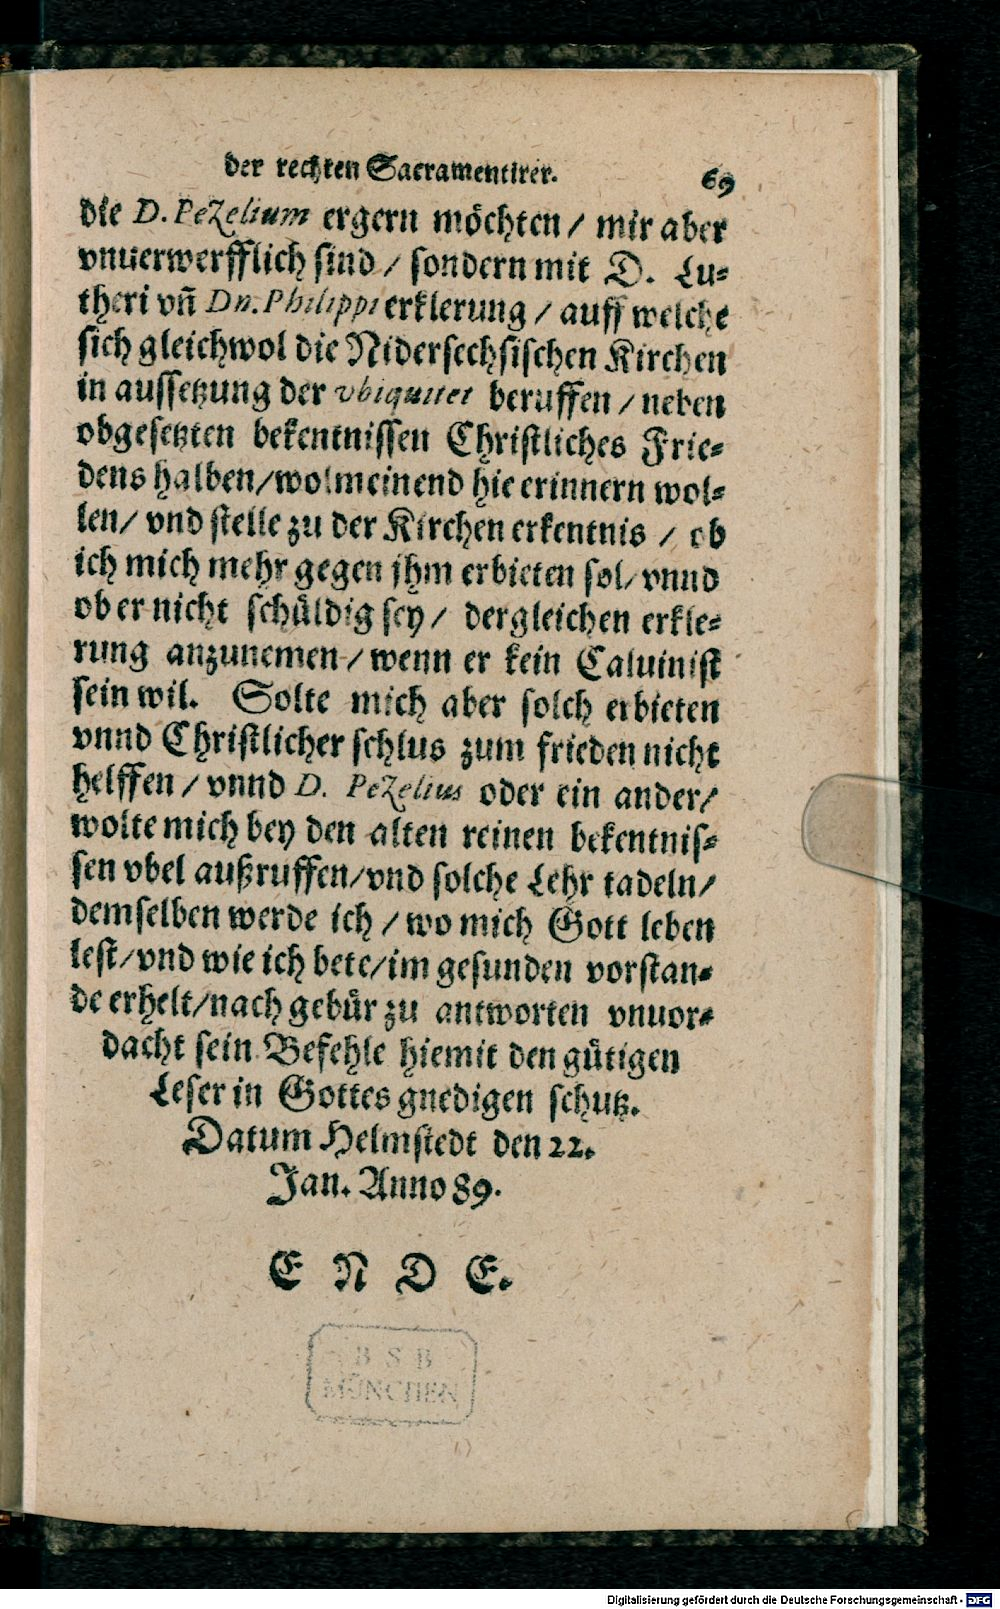 der rechten Sacramentirer. 69
die D. PeZelium ergern möchten / mir aber
vnuerwerfflich sind / sondern mit D. Lu-
theri vñ Dn. Philippi erklerung / auff welche
sich gleichwol die Nidersechsischen Kirchen
in aussetzung der vbiquitet beruffen / neben
obgesetzten bekentnissen Christliches Frie-
dens halben/wolmeinend hie erinnern wol-
len/ vnd stelle zu der Kirchen erkentnis / ob
ich mich mehr gegen jhm erbieten sol/ vnnd
ob er nicht schüldig sey / dergleichen erkle-
rung anzunemen / wenn er kein Caluinist
sein wil. Solte mich aber solch erbieten
vnnd Christlicher schlus zum frieden nicht
helffen / vnnd D. PeZelius oder ein ander/
wolte mich bey den alten reinen bekentnis-
sen vbel außruffen/vnd solche Lehr tadeln/
demselben werde ich / wo mich Gott leben
lest/vnd wie ich bete/im gesunden vorstan-
de erhelt/nach gebür zu antworten vnuor-
dacht sein. Befehle hiemit den gütigen
Leser in Gottes gnedigen schutz.
Datum Helmstedt den 22.
Jan. Anno 89.
E N D E.
B S B
MÜNCHEN
Digitalisierung gefördert durch die Deutsche Forschungsgemeinschaft - DFG